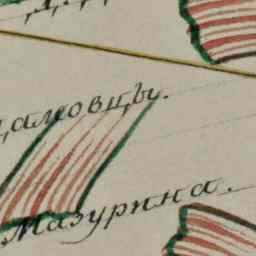 дамовцы.
Мазурина.